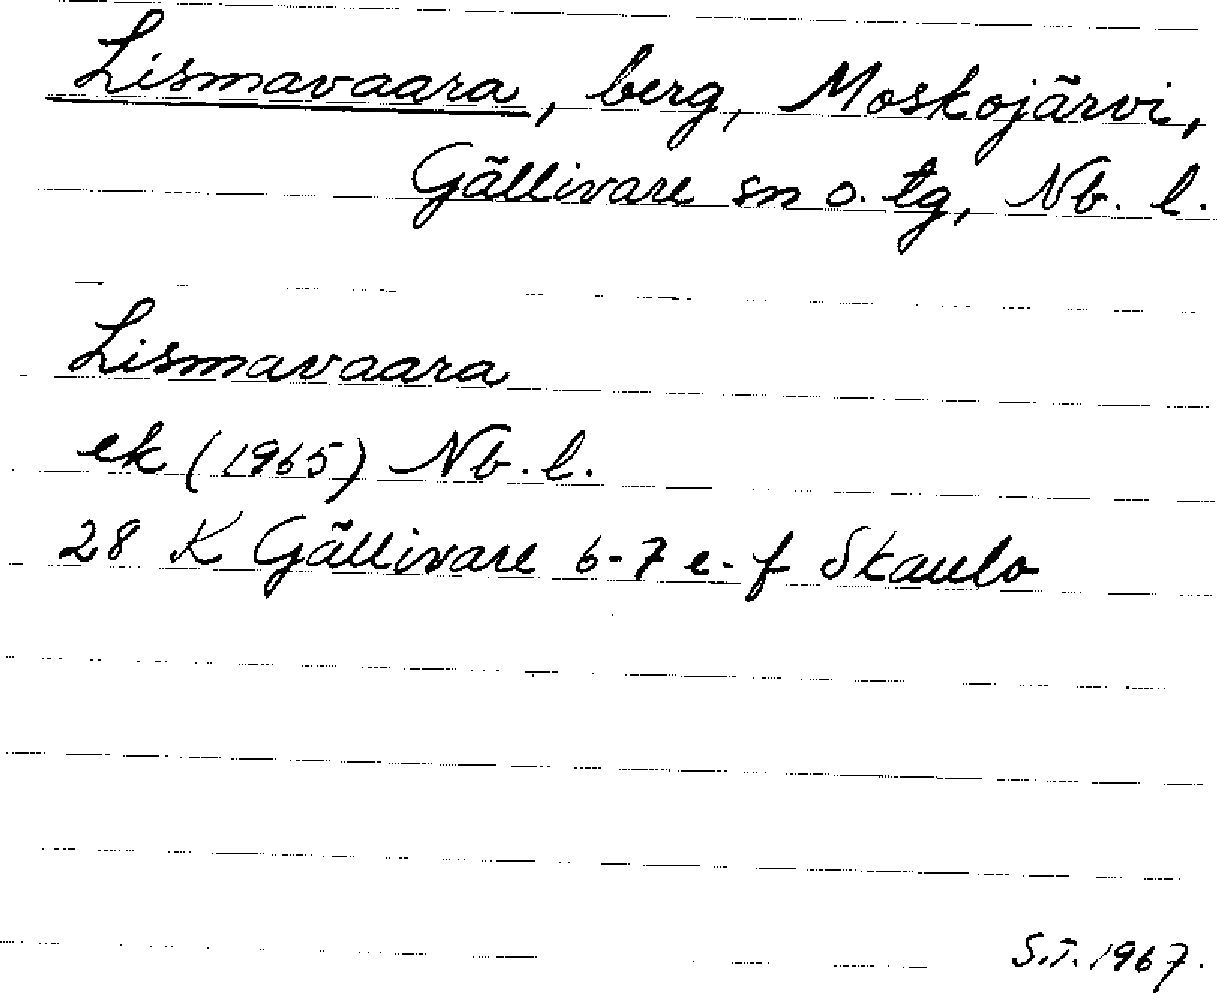 Lismavaara, berg, Moskojärvi,
Gällivare sn o. tg, Nb. l.
Lismavaara
ek (1965) Nb. l.
28 K Gällivare 6-7 e-f Skaulo
S.T. 1967.